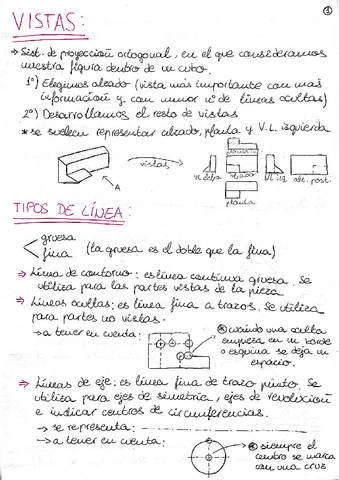 ①
VISTAS:
→ Sist. de proyección ortogonal, en el que consideramos
nuestra figura dentro de un cubo.
1º) Elegimos alzado (vista más importante con más
información y con menor nº de líneas ocultas)
2º) Desarrollamos el resto de vistas
* se suelen representar alzado, planta y V.L. izquierda
vistas
A
alzado
planta
TIPOS DE LÍNEA:
gruesa
fina
(la gruesa es el doble que la fina)
⇒ Línea de contorno: es línea continua gruesa. Se
utiliza para las partes vistas de la pieza
⇒ Líneas ocultas: es línea fina a trazos. Se utiliza
para partes no vistas.
→ a tener en cuenta:
⊛ cuando una oculta
empieza en un borde
o esquina se deja un
espacio.
⇒ Líneas de eje: es línea fina de trazo punto. Se
utiliza para ejes de simetría, ejes de revolución
e indicar centros de circunferencias.
→ se representa:
→ a tener en cuenta:
⊛ siempre el
centro se marca
con una cruz